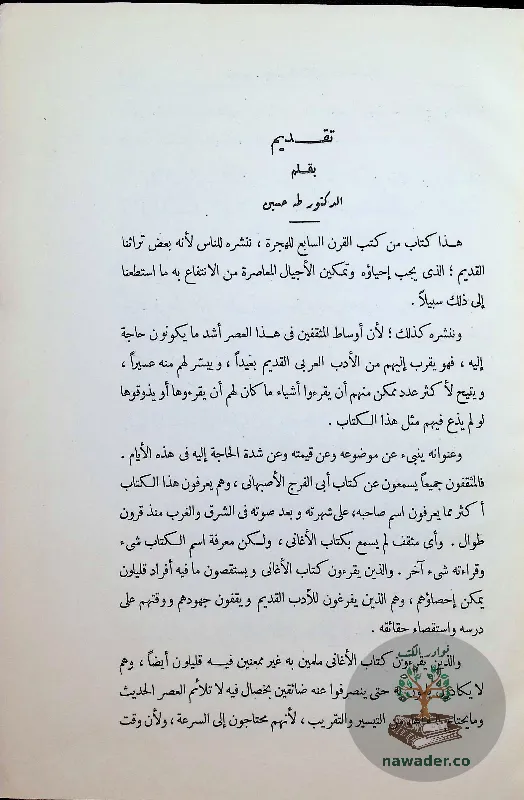 تقديم
بقلم
الدكتور طه حسين
هذا كتاب من كتب القرن السابع للهجرة ، ننشره للناس لأنه بعض تراثنا
القديم ؛ الذى يجب إحياؤه وتمكين الأجيال المعاصرة من الانتفاع به ما استطعنا
إلى ذلك سبيلاً .
وننشره كذلك ؛ لأن أوساط المثقفين فى هذا العصر أشد ما يكونون حاجة
إليه ، فهو يقرب إليهم من الأدب العربى القديم بعيداً ، وييسّر لهم منه عسيراً ،
ويتيح لأكثر عدد ممكن منهم أن يقرءوا أشياء ما كان لهم أن يقرءوها أو يذوقوها
لو لم يذع فيهم مثل هذا الكتاب .
وعنوانه ينبىء عن موضوعه وعن قيمته وعن شدة الحاجة إليه فى هذه الأيام .
فالمثقفون جميعاً يسمعون عن كتاب أبى الفرج الأصبهانى ، وهم يعرفون هذا الكتاب
أكثر مما يعرفون اسم صاحبه، على شهرته وبعد صوته فى الشرق والغرب منذ قرون
طوال . وأى مثقف لم يسمع بكتاب الأغانى ، ولكن معرفة اسم الكتاب شىء
وقراءته شىء آخر . والذين يقرءون كتاب الأغانى ويستقصون ما فيه أفراد قليلون
يمكن إحصاؤهم ، وهم الذين يفرغون للأدب القديم ويقفون جهودهم ووقتهم على
درسه واستقصاء حقائقه .
والذين يقرءون كتاب الأغانى ملمين به غير ممعنين فيه قليلون أيضاً ، وهم
لا يكادون له حتى ينصرفوا عنه ضائقين بخصال فيه لا تلائم العصر الحديث
وما من التيسير والتقريب ، لأنهم محتاجون إلى السرعة ، ولأن وقت
نوادر الكتب
nawader.co